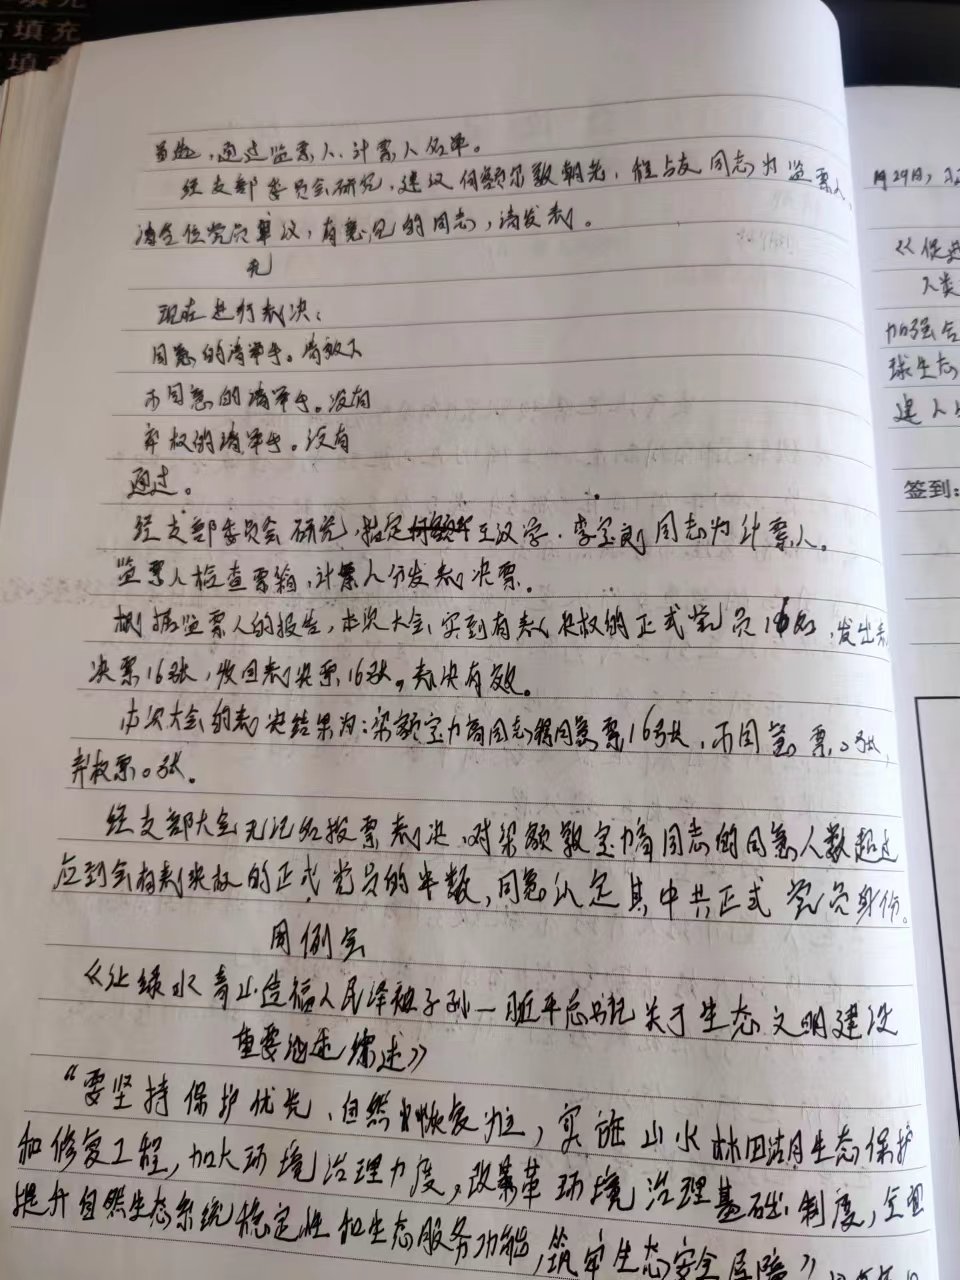 填充
古填充
填充
首先,通过监票人、计票人名单。
经支部委员会研究,建议何额尔敦朝老,程占友同志为监票人,
请各位党员审议,有意见的同志,请发表。
无
现在进行表决:
同意的请举手。请放下
不同意的请举手。没有
弃权的请举手。没有
通过。
经支部委员会研究,指定王汉字、李宝刚同志为计票人。
监票人检查票箱,计票人分发表决票。
根据监票人的报告,本次大会实到有表决权的正式党员16名,发出表
决票16张,收回表决票16张。表决有效。
本次大会的表决结果为:梁额宝力高同志得同意票16张,不同意票0张,
弃权票0张。
经支部大会无记名投票表决,对梁额敦宝力高同志的同意人数超过
应到会有表决权的正式党员的半数,同意认定其中共正式党员身份。
周例会
《让绿水青山造福人民泽被子孙—习近平总书记关于生态文明建设
重要论述综述》
“要坚持保护优先、自然恢复为主,实施山水林田湖生态保护
和修复工程,加大环境治理力度,改革环境治理基础制度,全面
提升自然生态系统稳定性和生态服务功能,筑牢生态安全屏障”
月29日,
《促进
人类
加强合
球生态
建人
签到: